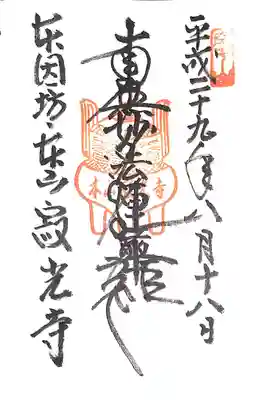 平成二十九年八月十八日
南無妙法蓮華経
本因坊・本山寂光寺